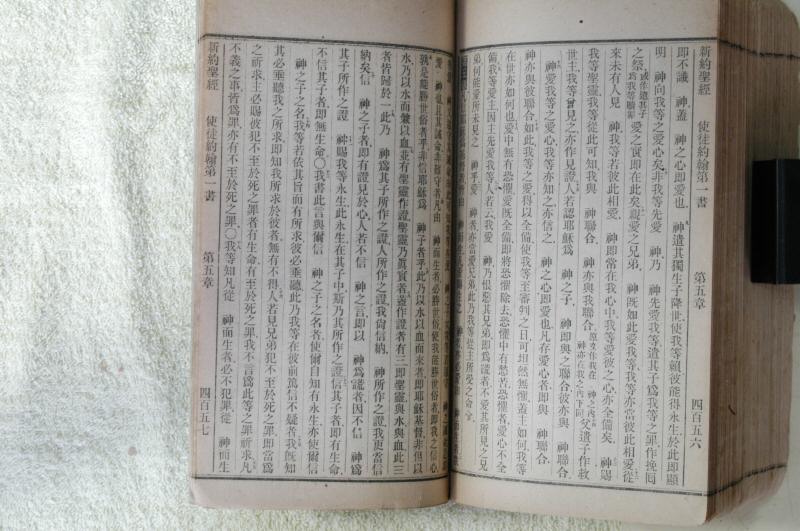 新約聖經 使徒約翰第一書 第五章 四百五六
即不識 神蓋 神之心即愛也 神遣其獨生子降世使我等賴彼能得永生於此即顯
明 神向我等之愛心矣非我等先愛 神乃 神先愛我等遣其子爲我等之罪作挽囘
之祭或作遣其子爲我等贖罪愛之實即在此矣親愛之兄弟 神既如此愛我等我等亦當彼此相愛從
來未有人見 神我等若彼此相愛 神即常在我心中我等愛彼之心亦全備矣 神賜
我等聖靈我等從此可知我與 神聯合 神亦與我聯合原文作我在 神之內 神亦在我之內下同父遣子作救
世主我等曾見之亦作見證人若認耶穌爲 神之子 神即與之聯合彼亦與 神聯合
神愛我等之愛心我等亦知之亦信之 神之心即愛也凡存愛心者即與 神聯合
神亦與彼聯合如此我等之愛得以全備使我等至審判之日可坦然無懼蓋主如何我等
在世亦如何也愛中無有恐懼愛既全備即將恐懼除去恐懼中有愁苦恐懼者愛心不全
備我等愛主因主先愛我等人若云我愛 神乃恨惡其兄弟即爲謊者不愛其所見之兄
弟何能愛所未見之 神乎愛 神者亦當愛兄弟此乃我等從主所受之命令
愛 神
我是能勝世俗者乎非信耶穌爲 神子者乎此乃以水以血而來者即耶穌基督非但以
水乃以水而兼以血並有聖靈作證聖靈乃眞實者蓋作證者有三即聖靈與水與血此三
者皆歸於一此乃 神爲其子所作之證人所作之證我尙信納 神所作之證我更當信
納矣信 神之子者即有證見於心人若不信 神之言即以 神爲謊者因不信 神爲
其子所作之證 神賜我等永生此永生在其子中斯乃其所作之證信其子者即有生命
不信其子者即無生命〇我書此言與爾信 神之子之名者使爾自知有永生亦使爾信
神之子之名我等若依其旨而有所求彼必垂聽此乃我等在彼前篤信不疑者我既知
其必垂聽我之所求即知我所求於彼者無有不得人若見兄弟犯不至於死之罪即當爲
之祈求主必賜彼犯不至於死之罪者有生命有至於死之罪我不言爲此等之罪祈求凡
不義之事皆爲罪亦有不至於死之罪〇我等知凡從 神而生者必不犯罪從 神而生
新約聖經 使徒約翰第一書 第五章 四百五七